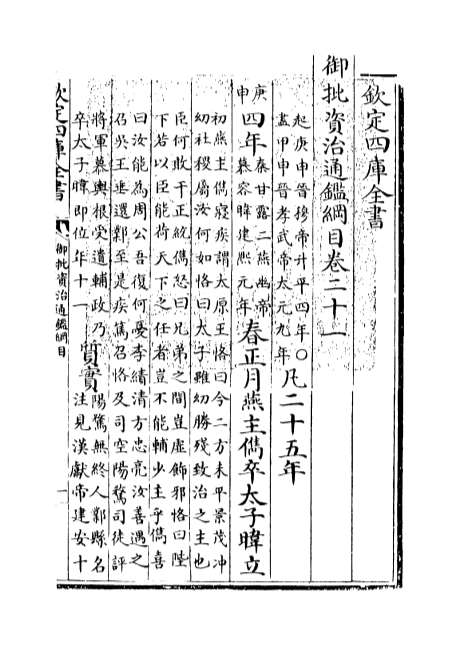 欽定四庫全書
御批資治通鑑綱目卷二十一
起庚申晉穆帝升平四年○凡二十五年
盡甲申晉孝武帝太元九年
庚申
四年
秦甘露二燕幽帝
慕容暐建熙元年
春正月燕主儁卒太子暐立
初燕主儁寢疾謂太原王恪曰今二方未平景茂冲
幼社稷屬汝何如恪曰太子雖幼勝殘致治之主也
臣何敢干正統儁怒曰兄弟之間豈虛飾邪恪曰陛
下若以臣能荷天下之任者豈不能輔少主乎儁喜
曰汝能為周公吾復何憂李績清方忠亮汝善遇之
召吳王垂還鄴至是疾篤召恪及司空陽騖司徒評
將軍慕輿根受遺輔政乃
卒太子暐即位年十一
質實
陽騖無終人鄴縣名
注見漢獻帝建安十
欽定四庫全書
御批資治通鑑綱目
一